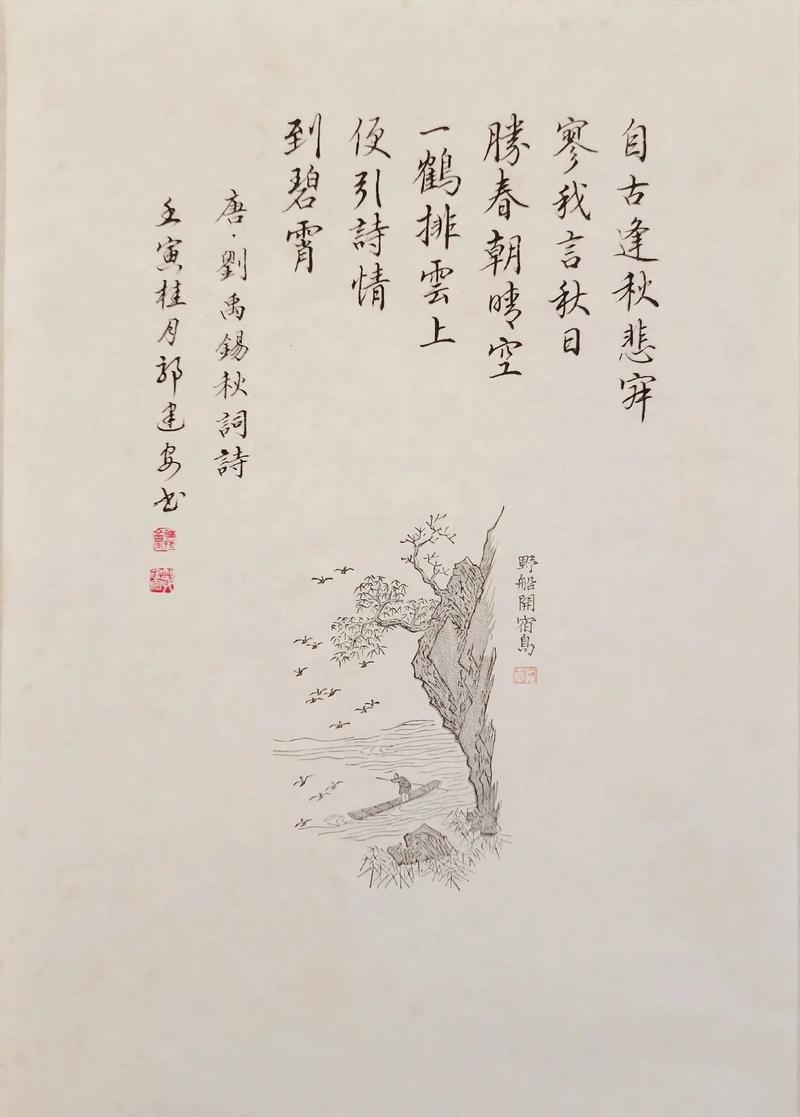 自古逢秋悲寂
寥我言秋日
勝春朝晴空
一鶴排雲上
便引詩情
到碧霄
唐·劉禹錫秋詞詩
壬寅桂月郭建安书
野船開宿鳥